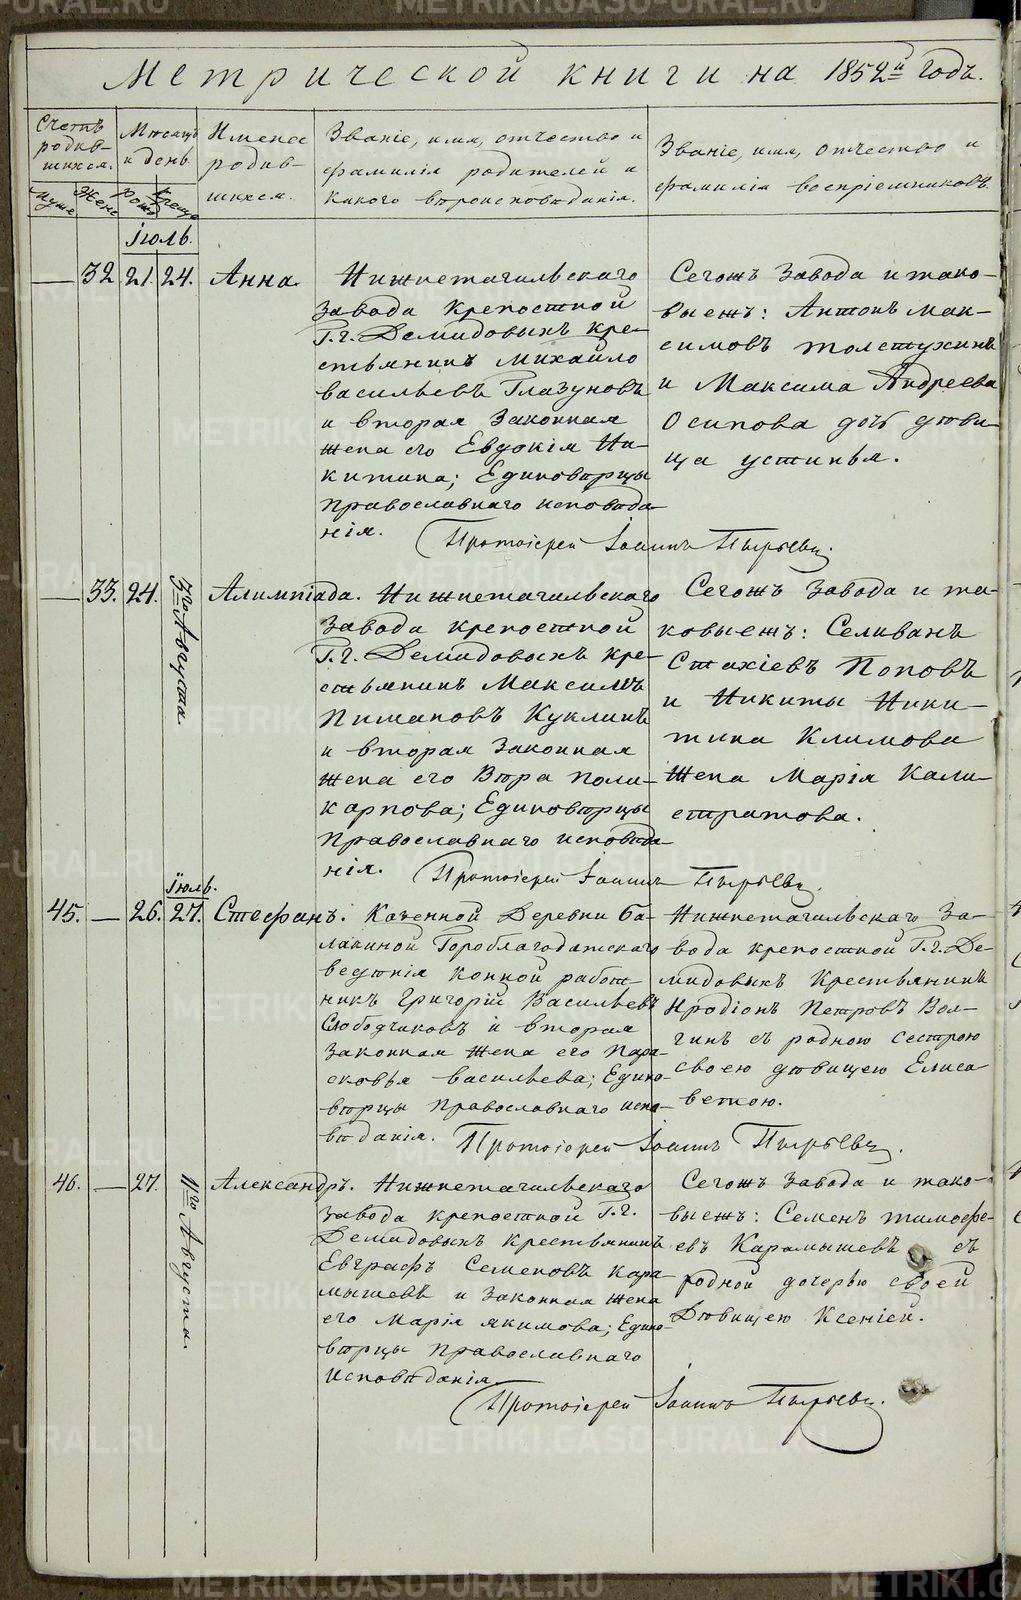 Метрической книги на 1852й годъ.
Счетъ родив-
шихся.
Мужс
Женс
Месяцъ
и день.
Рожд
Крещ
Имена
родив-
шихся.
Званіе, имя, отчество и
фамилія родителей и
какого вѣроисповѣданія.
Званіе, имя, отчество и
фамилія воспріемниковъ.
Іюль.
— 32 21. 24. Анна.
Нижнетагильскаго
завода крепостной
Г.г. Демидовыхъ кре-
стьянинъ Михайло
Васильевъ Глазуновъ
и вторая законная
жена его Евдокія Ни-
китина; Единовѣрцы
православнаго исповѣда-
нія.
Сегожъ завода и тако-
выежъ: Антонъ Мак-
симовъ Толстухинъ
и Максима Андреева
Осипова дочь дѣви-
ца Устинья.
Протоіерей Іоаннъ Пырьевъ.
— 33. 24. 3го Августа Алимпіада.
Нижнетагильскаго
завода крепостной
Г.г. Демидовыхъ кре-
стьянинъ Максимъ
Пимановъ Куклинъ
и вторая законная
жена его Вѣра Поли-
карпова; Единовѣрцы
православнаго исповѣда-
нія.
Сегожъ завода и та-
ковыежъ: Селиванъ
Стахіевъ Поповъ
и Никиты Ники-
тина Климова
жена Марія Кали-
стратова.
Протоіерей Іоаннъ Пырьевъ.
Іюль.
45. — 26. 27. Стефанъ.
Казенной деревни Ба-
лакиной Гороблагодатскаго
ведѣнія конной работ-
никъ Григорій Васильевъ
Слободчиковъ и вторая
законная жена его Пара-
сковья Васильева; Едино-
вѣрцы православнаго испо-
вѣданія.
Нижнетагильскаго за-
вода крепостной Г.г. Де-
мидовыхъ крестьянинъ
Иродіонъ Петровъ Вол-
гинъ съ родною сестрою
своею дѣвицею Елиса
ветою.
Протоіерей Іоаннъ Пырьевъ.
46. — 27. 11го Августа. Александръ.
Нижнетагильскаго
завода крепостной Г.г.
Демидовыхъ крестьянинъ
Евграфъ Семеновъ Кара-
мышевъ и законная жена
его Марія Якимова; Едино-
вѣрцы православнаго
исповѣданія.
Сегожъ завода и тако-
выежъ: Семенъ Тимофе-
евъ Карамышевъ съ
родной дочерью своей
дѣвицею Ксеніей.
Протоіерей Іоаннъ Пырьевъ.
METRIKI.GASO-URAL.RU